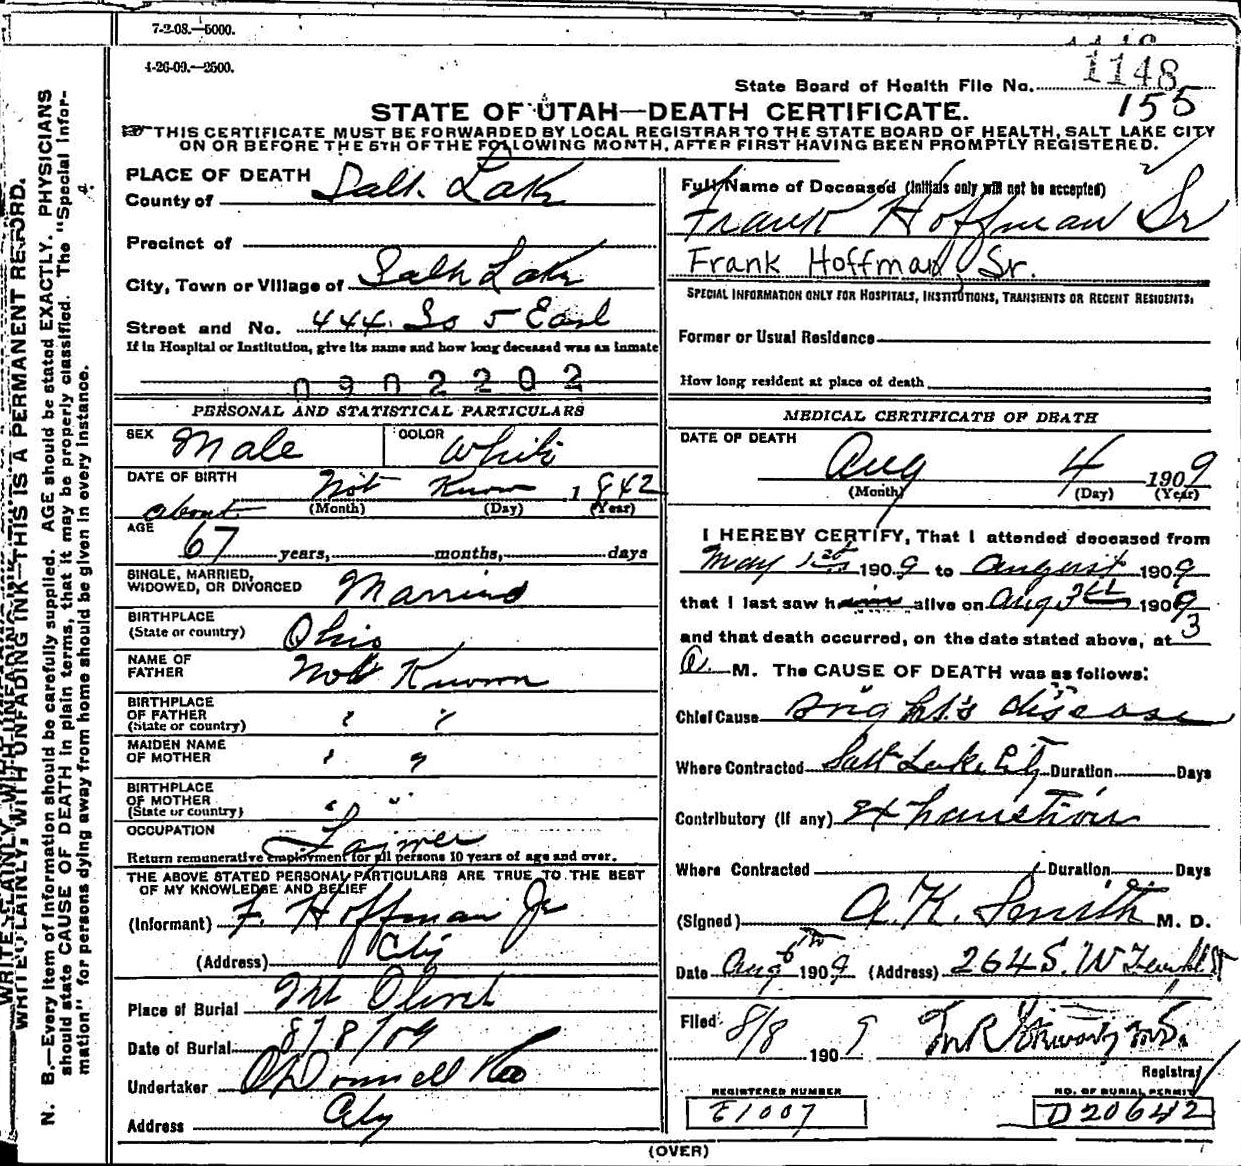 7-2-08.—5000.
4-26-09.—2500.
1148
State Board of Health File No.
155
STATE OF UTAH—DEATH CERTIFICATE.
THIS CERTIFICATE MUST BE FORWARDED BY LOCAL REGISTRAR TO THE STATE BOARD OF HEALTH, SALT LAKE CITY
ON OR BEFORE THE 5TH OF THE FOLLOWING MONTH, AFTER FIRST HAVING BEEN PROMPTLY REGISTERED.
WRITE PLAINLY, WITH UNFADING INK—THIS IS A PERMANENT RECORD.
N. B.—Every item of information should be carefully supplied. AGE should be stated EXACTLY. PHYSICIANS
should state CAUSE OF DEATH in plain terms, that it may be properly classified. The "Special Infor-
mation" for persons dying away from home should be given in every instance.
PLACE OF DEATH
County of Salt Lake
Precinct of
City, Town or Village of Salt Lake
Street and No. 444 So 5 East
If in Hospital or Institution, give its name and how long deceased was an inmate
0902202
PERSONAL AND STATISTICAL PARTICULARS
SEX Male COLOR White
DATE OF BIRTH Not Know 1842
about (Month) (Day) (Year)
AGE 67 years, months, days
SINGLE, MARRIED,
WIDOWED, OR DIVORCED Married
BIRTHPLACE
(State or country) Ohio
NAME OF
FATHER Not Known
BIRTHPLACE
OF FATHER
(State or country) " "
MAIDEN NAME
OF MOTHER " "
BIRTHPLACE
OF MOTHER
(State or country) " "
OCCUPATION Farmer
Return remunerative employment for all persons 10 years of age and over.
THE ABOVE STATED PERSONAL PARTICULARS ARE TRUE TO THE BEST
OF MY KNOWLEDGE AND BELIEF
(Informant) F. Hoffman Jr
(Address) City
Place of Burial Mt Olivet
Date of Burial 8/8/09
Undertaker O'Donnell & Co
Address City
Full Name of Deceased (Initials only will not be accepted)
Frank Hoffman Sr
Frank Hoffman, Sr.
SPECIAL INFORMATION ONLY FOR HOSPITALS, INSTITUTIONS, TRANSIENTS OR RECENT RESIDENTS:
Former or Usual Residence
How long resident at place of death
MEDICAL CERTIFICATE OF DEATH
DATE OF DEATH
Aug 4 1909
(Month) (Day) (Year)
I HEREBY CERTIFY, That I attended deceased from
May 1st 1909 to August 1909
that I last saw him alive on Aug 3th 1909
and that death occurred, on the date stated above, at 3
A. M. The CAUSE OF DEATH was as follows:
Chief Cause Bright's disease
Where Contracted Salt Lake City Duration Days
Contributory (if any) exhaustion
Where Contracted Duration Days
(Signed) A. K. Smith M. D.
Date Aug 6th 1909 (Address) 264 S. W Temple St
Filed 8/8 1909
Registrar
REGISTERED NUMBER
E1007
NO. OF BURIAL PERMIT
D20642
(OVER)